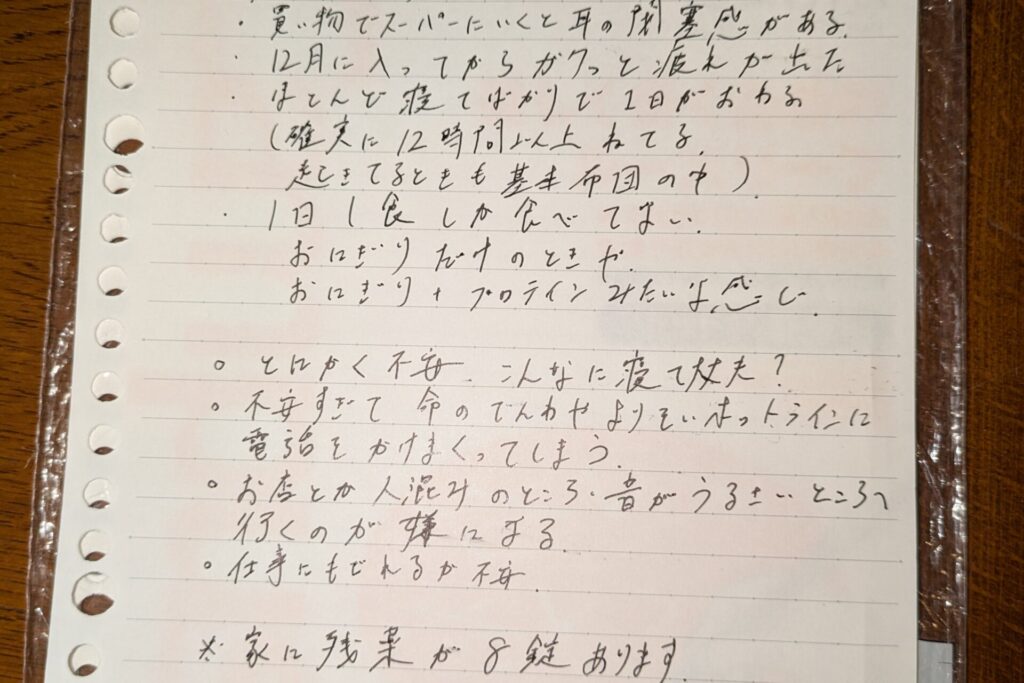 ・買い物でスーパーにいくと耳の閉塞感がある。
・12月に入ってからガクっと疲れが出た
・ほとんど寝てばかりで1日がおわる
(確実に12時間以上ねてる。
起きてるときも基本布団の中)
・1日1食しか食べてない。
おにぎりだけのときや、
おにぎり+プロテインみたいな感じ。
○とにかく不安。こんなに寝て大丈夫?
○不安すぎて命のでんわやよりそいホットラインに
電話をかけまくってしまう。
○お店とか人混みのところ・音がうるさいところへ
行くのが嫌になる。
○仕事にもどれるか不安。
※家に残薬が8錠あります